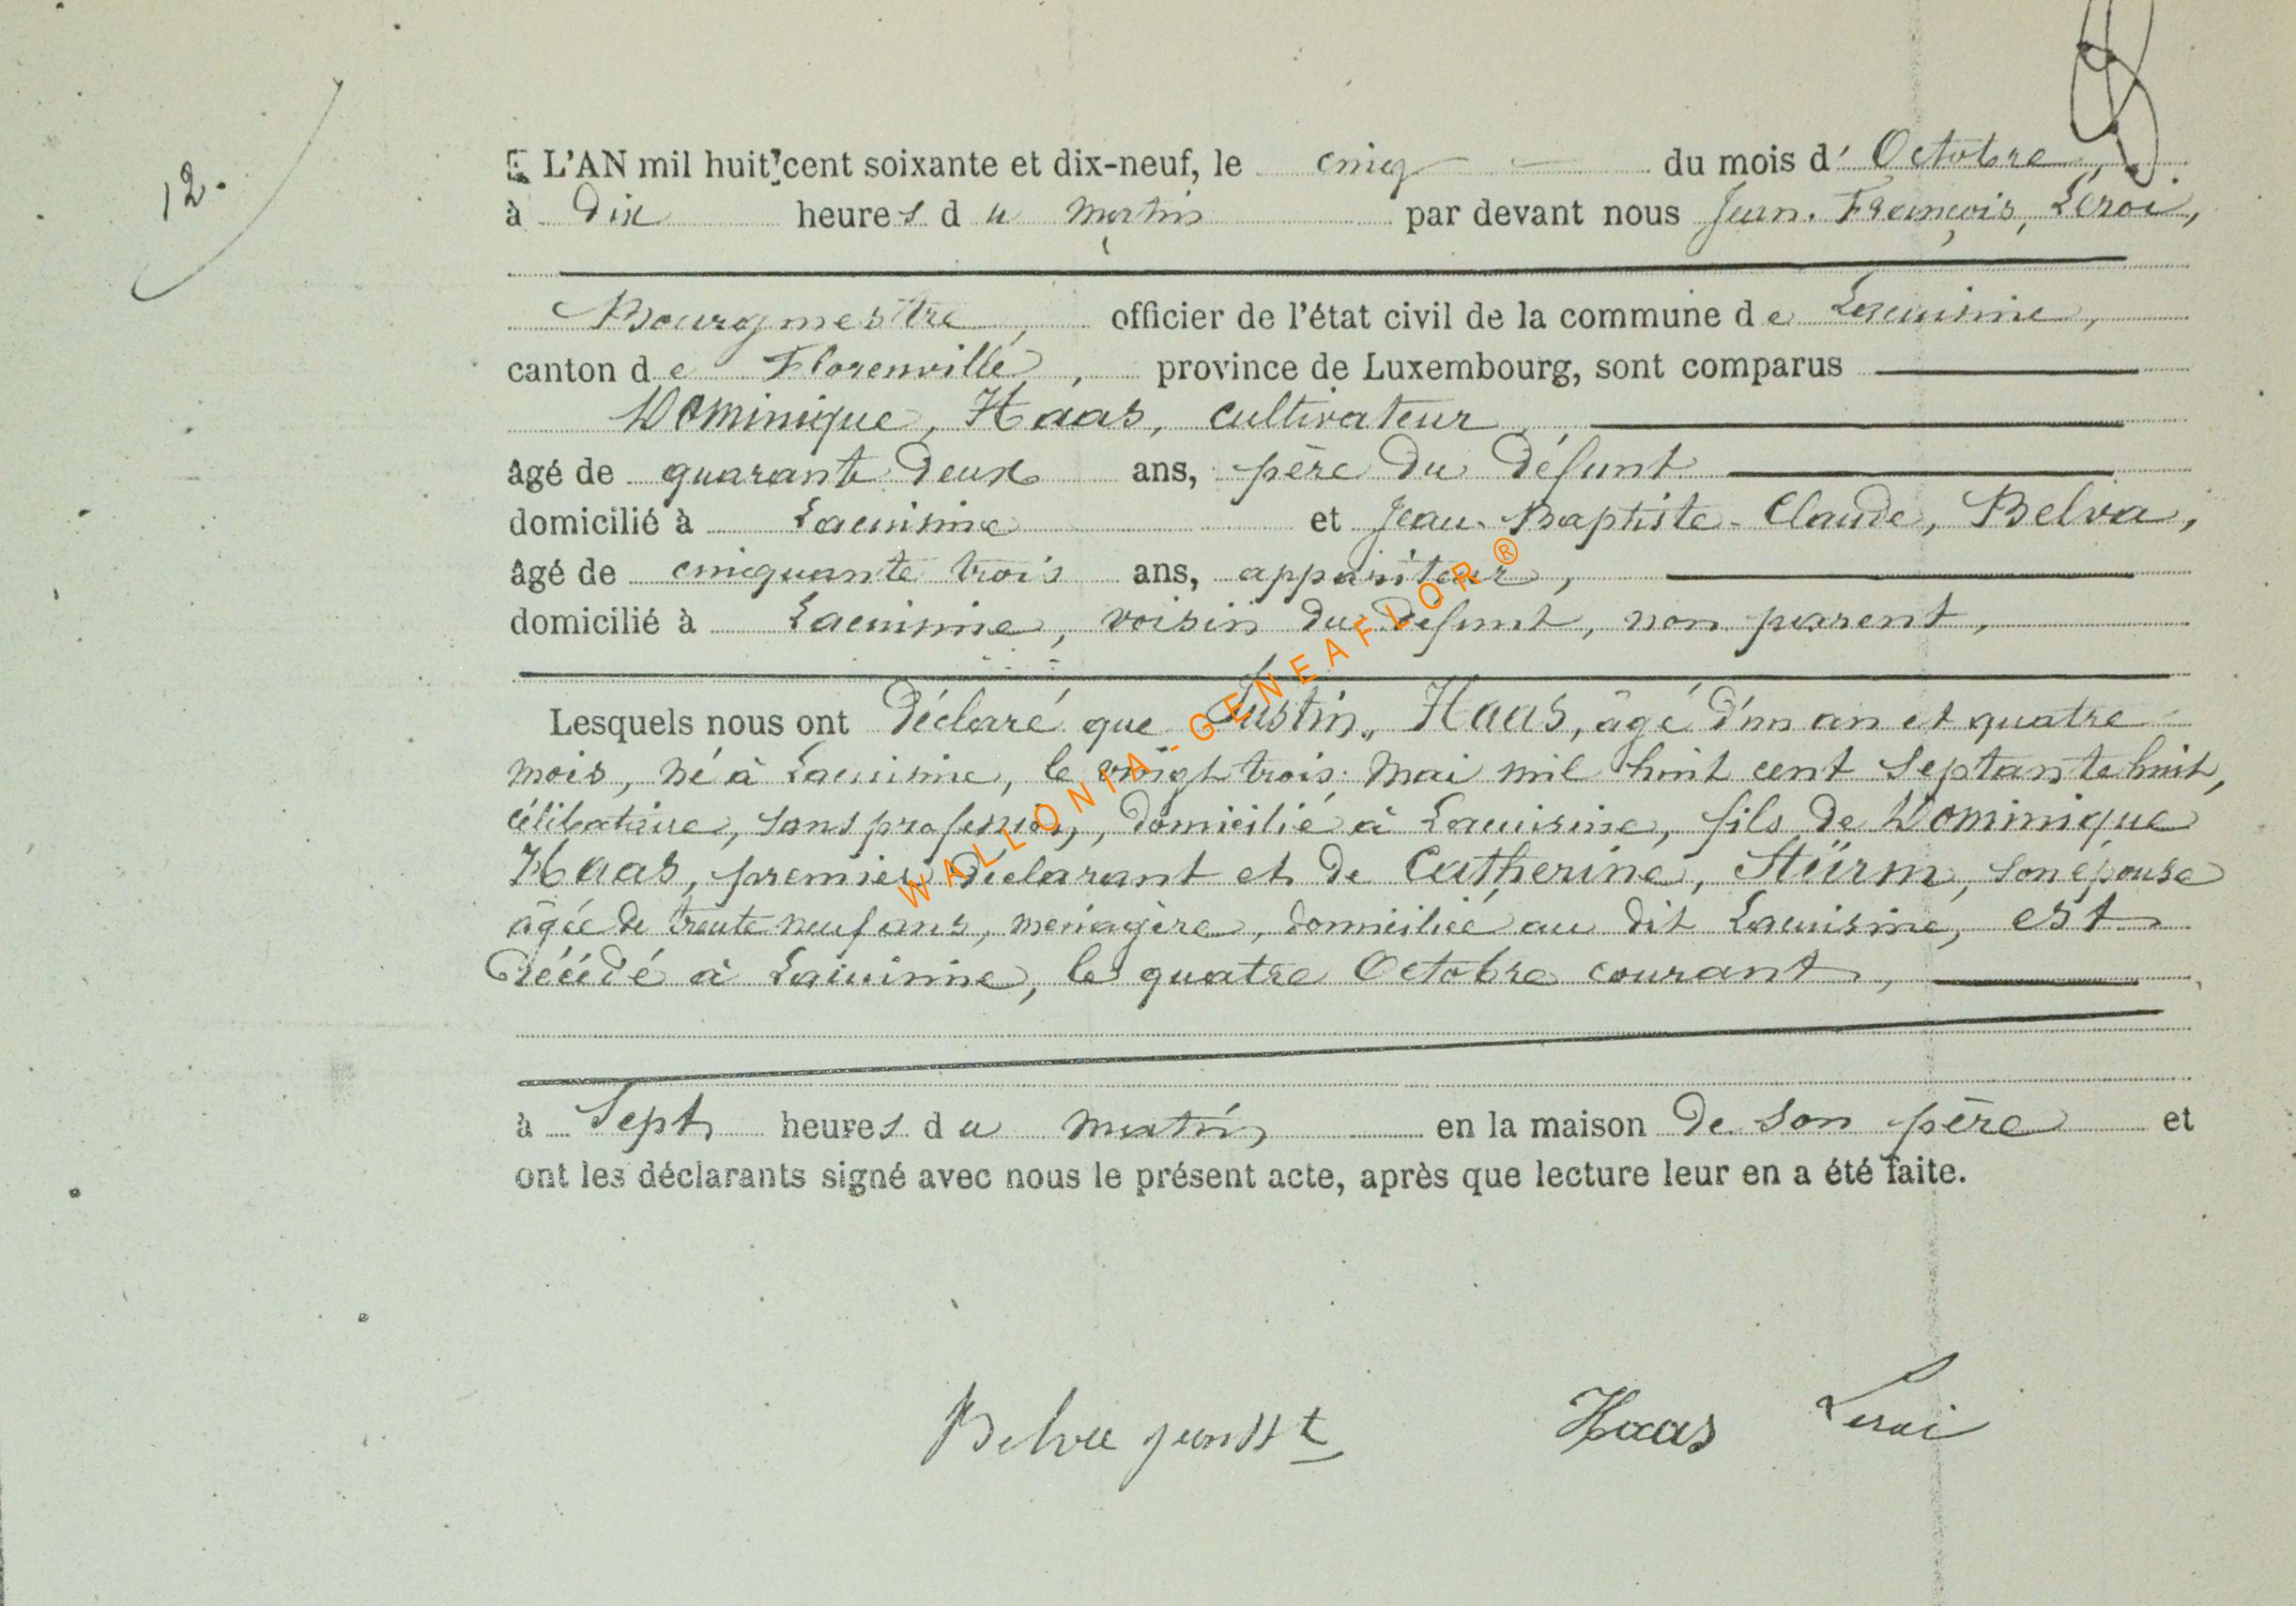 12.
L'AN mil huit cent soixante et dix-neuf, le cinq du mois d' Octobre,
à dix heures du matin par devant nous Jean-François, Leroi,
Bourgmestre, officier de l'état civil de la commune de Lacuisine,
canton de Florenville, province de Luxembourg, sont comparus
Dominique, Haas, cultivateur,
âgé de quarante deux ans, père du défunt
domicilié à Lacuisine et Jean-Baptiste-Claude, Belva,
âgé de cinquante trois ans, appariteur,
domicilié à Lacuisine, voisin du défunt, non parent,
Lesquels nous ont déclaré que Justin, Haas, âgé d'un an et quatre
mois, né à Lacuisine, le vingt trois Mai mil huit cent septante huit,
célibataire, sans profession, domicilié à Lacuisine, fils de Dominique
Haas, premier déclarant et de Catherine, Stürm, son épouse
âgée de trente neuf ans, ménagère, domiciliée au dit Lacuisine, est
décédé à Lacuisine, le quatre Octobre courant,
à sept heures du matin, en la maison de son père et
ont les déclarants signé avec nous le présent acte, après que lecture leur en a été faite.
Belva Haas Leroi
WALLONIA-GENEAFLOR®